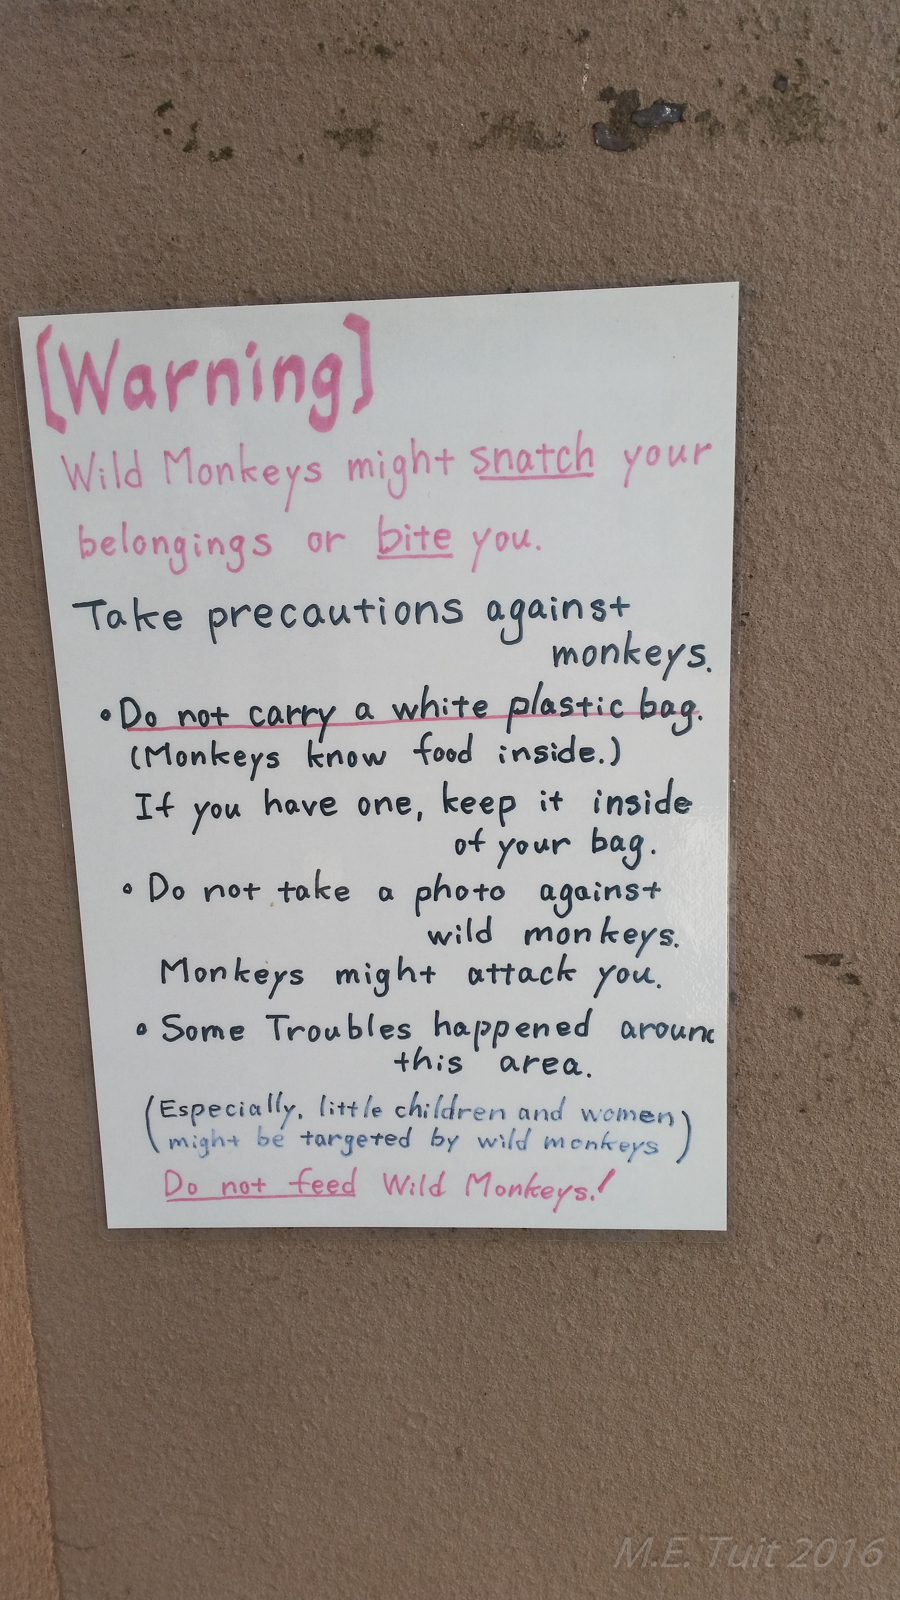 [Warning]
Wild Monkeys might snatch your
belongings or bite you.
Take precautions against
monkeys.
• Do not carry a white plastic bag.
(Monkeys know food inside.)
If you have one, keep it inside
of your bag.
• Do not take a photo against
wild monkeys.
Monkeys might attack you.
• Some Troubles happened around
this area.
(Especially, little children and women
might be targeted by wild monkeys)
Do not feed Wild Monkeys.!
M.E. Tuit 2016